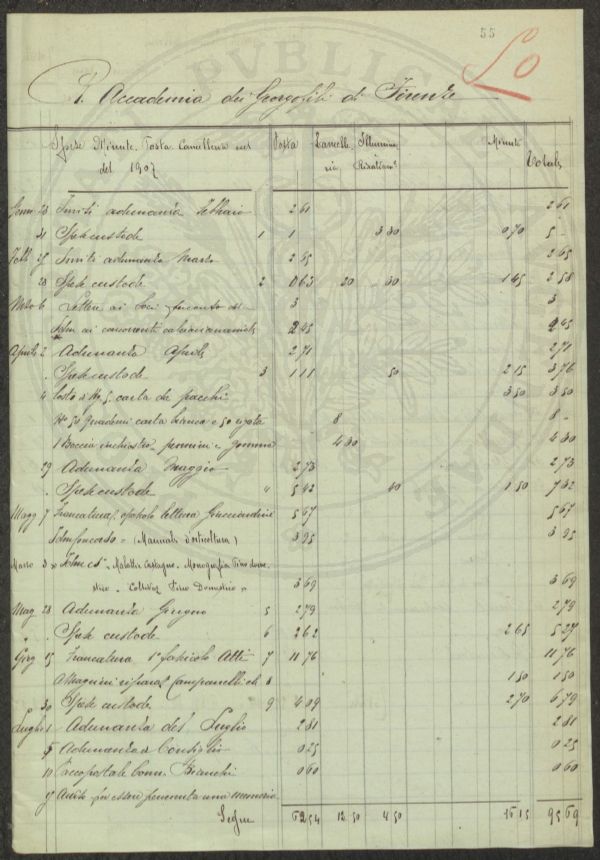 55
50
R. Accademia dei Georgofili di Firenze
Spese Minute. Posta Cancelleria nel Posta Cancelle Illumina Minute Totale
del 1907 ria Riscaldamto
Genn 28 Inviti adunanza Febbraio 2 61 2 61
31 Spese custode 1 1 3 30 0 70 5 -
Febb 25 Inviti adunanza Marzo 2 65 2 65
28 Spese custode 2 0 63 20 30 1 45 2 58
Marzo 6 Lettere ai Soci 3 3
Idem ai concorrenti 2 45 2 45
Aprile 2 Adunanza Aprile 2 71 2 71
" Spese custode 3 1 11 50 2 15 3 76
4 Costo di Kg 5 carta da pacchi 3 50 3 50
No 50 Quaderni carta bianca e 50 rigata 8 8 -
1 Boccia inchiostro, pennini e gomma 4 30 4 30
29 Adunanza Maggio 2 73 2 73
" Spese custode 4 5 42 40 1 50 7 32
Magg 7 Francatura opuscolo lettera Guicciardini 5 67 5 67
Idem Concorso = (Manuali d'orticultura) 3 95 3 95
Marzo 3 Idem - Malattie Castagno. Monografia Pino dome
stico. Coltivaz Pino Domestico " 3 69 3 69
Mag 28 Adunanza Giugno 5 2 79 2 79
" " Spese custode 6 2 62 2 65 5 27
Giug 25 Francatura 1o fascicolo Atti 7 11 76 11 76
A Magrini riparaz Campanelli el. 8 1 50 1 50
30 Spese custode 9 4 09 2 70 6 79
Luglio 1 Adunanza del Luglio 2 81 2 81
5 Adunanza Consiglio 0 25 0 25
10 Pacco postale Comm. Bianchi 0 60 0 60
per essere una memoria
Segue 62 54 12 50 4 50 16 15 95 69